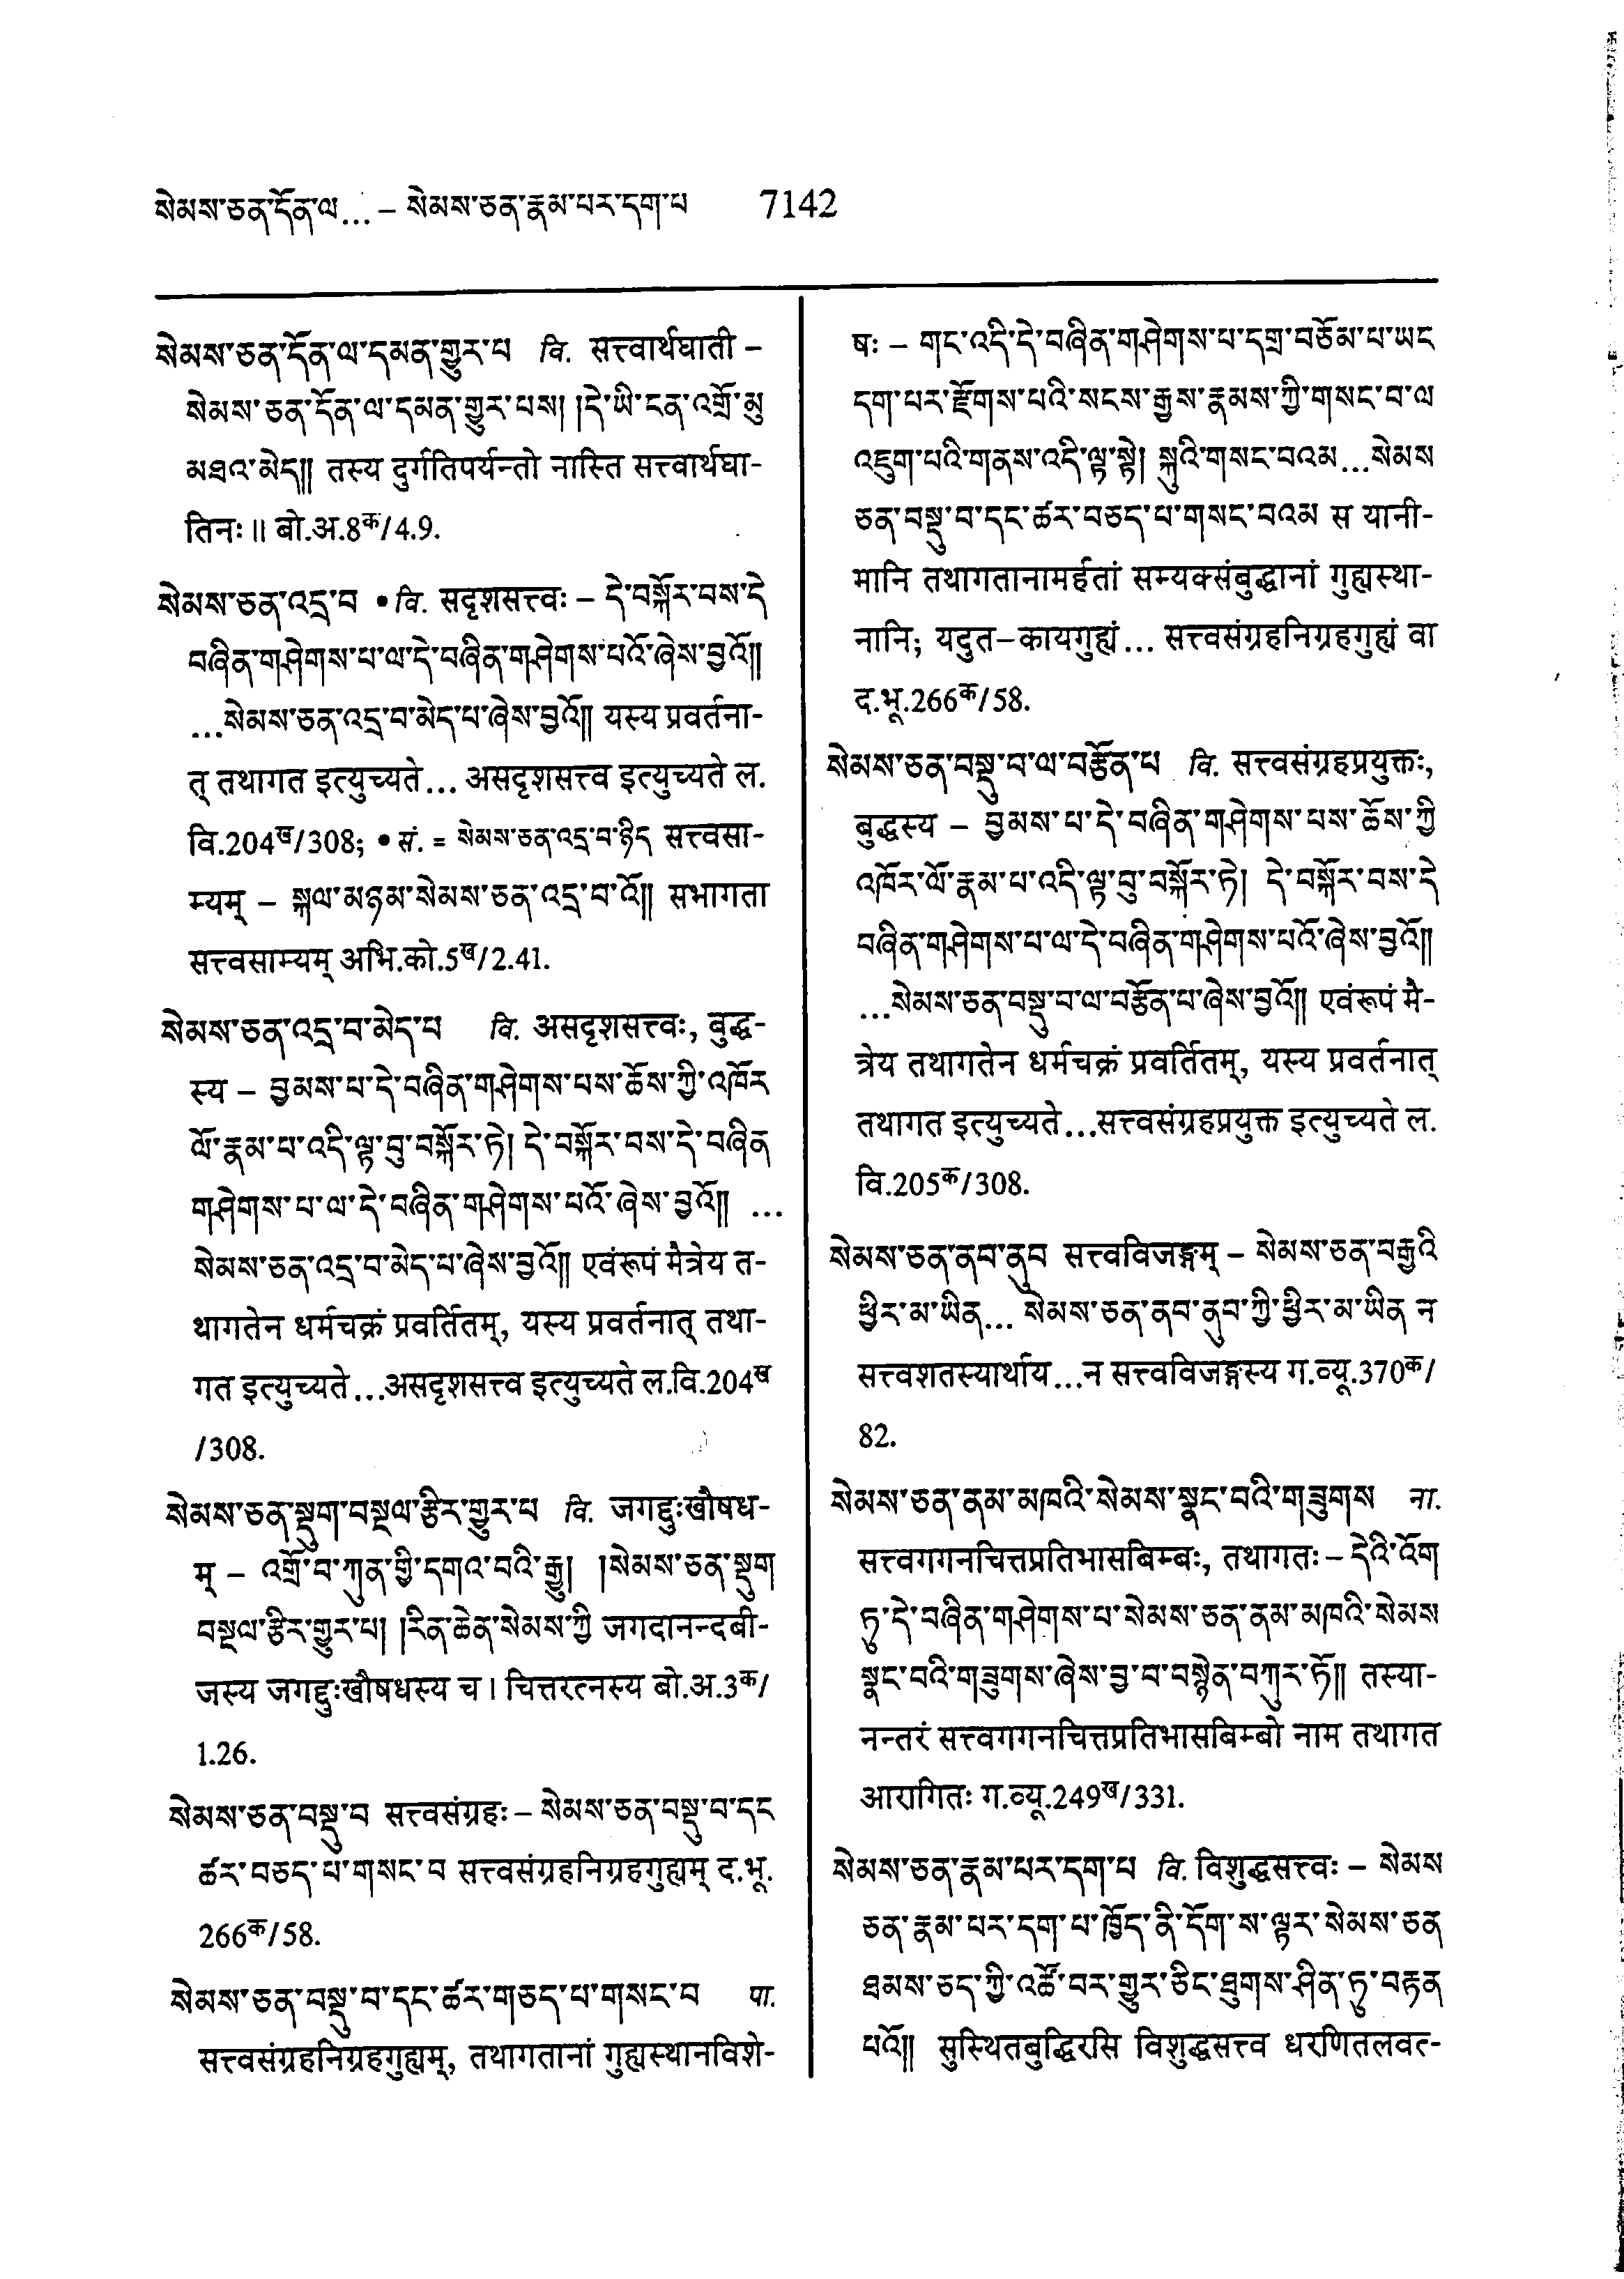 སེམས་ཅན་དོན་ལ... – སེམས་ཅན་རྣམ་པར་དག་པ 7142
སེམས་ཅན་དོན་ལ་དམན་གྱུར་པ वि. सत्त्वार्थघाती –
སེམས་ཅན་དོན་ལ་དམན་གྱུར་པས། །དེ་ཡི་ངན་འགྲོ་མུ
མཐའ་མེད།། तस्य दुर्गतिपर्यन्तो नास्ति सत्त्वार्थघा-
तिनः॥ बो.अ.8क/4.9.
སེམས་ཅན་འདྲ་བ • वि. सदृशसत्त्वः – དེ་བསྐོར་བས་དེ
བཞིན་གཤེགས་པ་ལ་དེ་བཞིན་གཤེགས་པའོ་ཞེས་བྱའོ།།
...སེམས་ཅན་འདྲ་བ་མེད་པ་ཞེས་བྱའོ།། यस्य प्रवर्तना-
त् तथागत इत्युच्यते... असदृशसत्त्व इत्युच्यते ल.
वि.204ख/308; • सं. = སེམས་ཅན་འདྲ་བ་ཉིད सत्त्वसा-
म्यम् – སྐལ་མཉམ་སེམས་ཅན་འདྲ་བ་འོ།། सभागता
सत्त्वसाम्यम् अभि.को.5ख/2.41.
སེམས་ཅན་འདྲ་བ་མེད་པ वि. असदृशसत्त्वः, बुद्ध-
स्य – བྱམས་པ་དེ་བཞིན་གཤེགས་པས་ཆོས་ཀྱི་འཁོར
ལོ་རྣམ་པ་འདི་ལྟ་བུ་བསྐོར་ཏེ། དེ་བསྐོར་བས་དེ་བཞིན
གཤེགས་པ་ལ་དེ་བཞིན་གཤེགས་པའོ་ཞེས་བྱའོ།། ...
སེམས་ཅན་འདྲ་བ་མེད་པ་ཞེས་བྱའོ།། एवंरूपं मैत्रेय त-
थागतेन धर्मचक्रं प्रवर्तितम्, यस्य प्रवर्तनात् तथा-
गत इत्युच्यते...असदृशसत्त्व इत्युच्यते ल.वि.204ख
/308.
སེམས་ཅན་སྡུག་བསྔལ་རྩིར་གྱུར་པ वि. जगद्दुःखौषध-
म् – འགྲོ་བ་ཀུན་གྱི་དགའ་བའི་རྒྱུ། །སེམས་ཅན་སྡུག
བསྔལ་རྩིར་གྱུར་པ། །རིན་ཆེན་སེམས་ཀྱི जगदानन्दबी-
जस्य जगद्दुःखौषधस्य च। चित्तरत्नस्य बो.अ.3क/
1.26.
སེམས་ཅན་བསྡུ་བ सत्त्वसंग्रहः – སེམས་ཅན་བསྡུ་བ་དང
ཚར་བཅད་པ་གསང་བ सत्त्वसंग्रहनिग्रहगुह्यम् द.भू.
266क/58.
སེམས་ཅན་བསྡུ་བ་དང་ཚར་གཅད་པ་གསང་བ पा.
सत्त्वसंग्रहनिग्रहगुह्यम्, तथागतानां गुह्यस्थानविशे-
षः – གང་འདི་དེ་བཞིན་གཤེགས་པ་དགྲ་བཅོམ་པ་ཡང
དག་པར་རྫོགས་པའི་སངས་རྒྱས་རྣམས་ཀྱི་གསང་བ་ལ
འཇུག་པའི་གནས་འདི་ལྟ་སྟེ། སྐུའི་གསང་བའམ...སེམས
ཅན་བསྡུ་བ་དང་ཚར་བཅད་པ་གསང་བའམ स यानी-
मानि तथागतानामर्हतां सम्यक्संबुद्धानां गुह्यस्था-
नानि; यदुत–कायगुह्यं... सत्त्वसंग्रहनिग्रहगुह्यं वा
द.भू.266क/58.
སེམས་ཅན་བསྡུ་བ་ལ་བརྩོན་པ वि. सत्त्वसंग्रहप्रयुक्तः,
बुद्धस्य – བྱམས་པ་དེ་བཞིན་གཤེགས་པས་ཆོས་ཀྱི
འཁོར་ལོ་རྣམ་པ་འདི་ལྟ་བུ་བསྐོར་ཏེ། དེ་བསྐོར་བས་དེ
བཞིན་གཤེགས་པ་ལ་དེ་བཞིན་གཤེགས་པའོ་ཞེས་བྱའོ།།
...སེམས་ཅན་བསྡུ་བ་ལ་བརྩོན་པ་ཞེས་བྱའོ།། एवंरूपं मै-
त्रेय तथागतेन धर्मचक्रं प्रवर्तितम्, यस्य प्रवर्तनात्
तथागत इत्युच्यते...सत्त्वसंग्रहप्रयुक्त इत्युच्यते ल.
वि.205क/308.
སེམས་ཅན་ནབ་ནུབ सत्त्वविजङ्गम् – སེམས་ཅན་བརྒྱའི
ཕྱིར་མ་ཡིན... སེམས་ཅན་ནབ་ནུབ་ཀྱི་ཕྱིར་མ་ཡིན न
सत्त्वशतस्यार्थाय...न सत्त्वविजङ्गस्य ग.व्यू.370क/
82.
སེམས་ཅན་ནམ་མཁའི་སེམས་སྣང་བའི་གཟུགས ना.
सत्त्वगगनचित्तप्रतिभासबिम्बः, तथागतः – དེའི་འོག
ཏུ་དེ་བཞིན་གཤེགས་པ་སེམས་ཅན་ནམ་མཁའི་སེམས
སྣང་བའི་གཟུགས་ཞེས་བྱ་བ་བསྙེན་བཀུར་ཏོ།། तस्या-
नन्तरं सत्त्वगगनचित्तप्रतिभासबिम्बो नाम तथागत
आरागितः ग.व्यू.249ख/331.
སེམས་ཅན་རྣམ་པར་དག་པ वि. विशुद्धसत्त्वः – སེམས
ཅན་རྣམ་པར་དག་པ་ཁྱོད་ནི་དོག་ས་ལྟར་སེམས་ཅན
ཐམས་ཅད་ཀྱི་འཚོ་བར་གྱུར་ཅིང་ཐུགས་ཤིན་ཏུ་བརྟན
པའོ།། सुस्थितबुद्धिरसि विशुद्धसत्त्व धरणितलवत्-